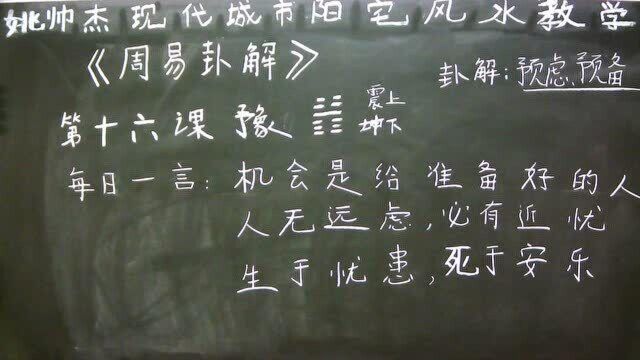 姚帅杰现代城市阳宅风水教学
《周易卦解》
卦解：预虑、预备
第十六课 豫 ䷏ 震上
坤下
每日一言：机会是给准备好的人
人无远虑，必有近忧
生于忧患，死于安乐